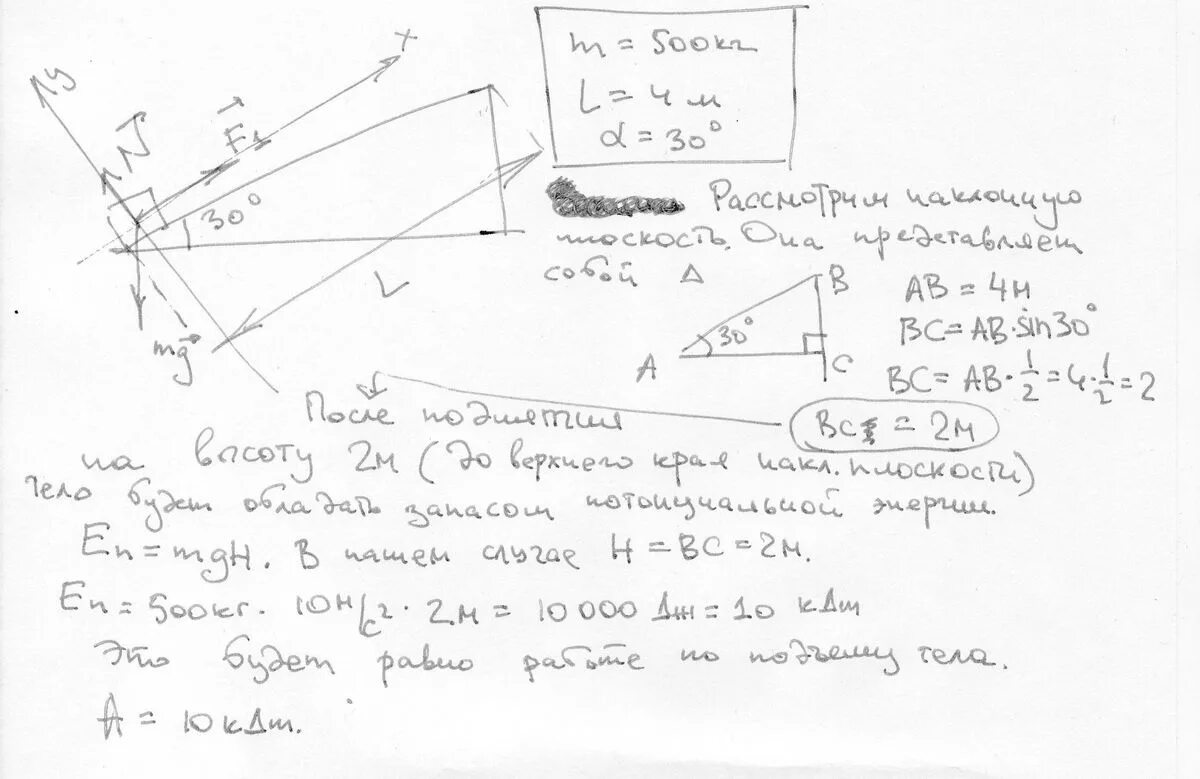 m = 500кг
L = 4 м
α = 30°
y
x
N
F₁
30°
L
mg
Рассмотрим наклонную
плоскость. Она представляет
собой Δ
A
B
C
30°
AB = 4м
BC = AB·sin30°
BC = AB·1/2 = 4·1/2 = 2
BC = 2м
После поднятия
на высоту 2м (до верхнего края накл. плоскости)
тело будет обладать запасом потенциальной энергии.
Eп = mgH. В нашем случае H = BC = 2м.
Eп = 500кг · 10м/с² · 2м = 10 000 Дж = 10 кДж
Это будет равно работе по подъему тела.
A = 10кДж.